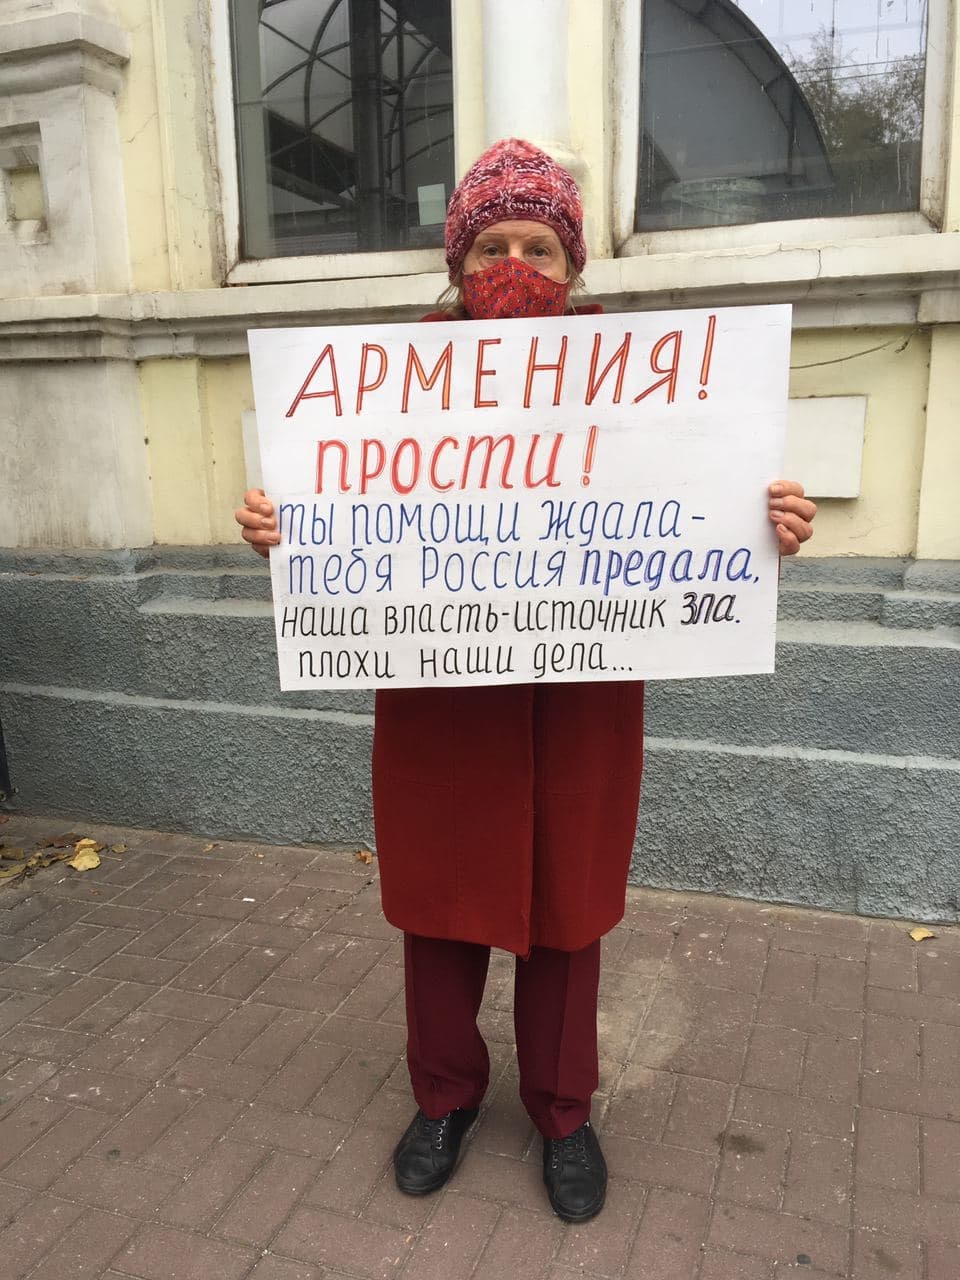 АРМЕНИЯ!
ПРОСТИ!
ТЫ ПОМОЩИ ЖДАЛА-
ТЕБЯ РОССИЯ ПРЕДАЛА,
НАША ВЛАСТЬ-ИСТОЧНИК ЗЛА.
ПЛОХИ НАШИ ДЕЛА...